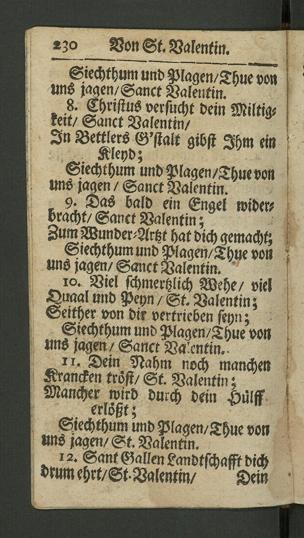 230 Von St. Valentin.
Siechthum und Plagen/Thue von
uns jagen/Sanct Valentin.
8. Christus versucht dein Miltig-
keit/ Sanct Valentin/
In Bettlers G'stalt gibst Ihm ein
Kleyd;
Siechthum und Plagen/Thue von
uns jagen / Sanct Valentin.
9. Das bald ein Engel wider-
bracht/ Sanct Valentin;
Zum Wunder-Artzt hat dich gemacht;
Siechthum und Plagen/Thue von
uns jagen/ Sanct Valentin.
10. Viel schmertzlich Wehe/ viel
Quaal und Peyn / St. Valentin;
Seither von dir vertrieben seyn;
Siechthum und Plagen/Thue von
uns jagen/ Sanct Valentin.
11. Dein Nahm noch manchen
Krancken tröst/ St. Valentin;
Mancher wird durch dein Hülff
erlößt;
Siechthum und Plagen/Thue von
uns jagen/ St. Valentin.
12. Sant Gallen Landtschafft dich
drum ehrt/St. Valentin/ Dein